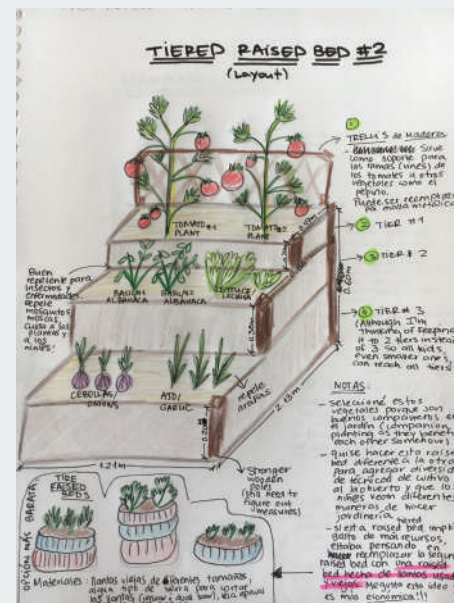 TIERED RAISED BED #2
(Layout)
①
TRELLIS de Madera
Sirve
como soporte para
las ramas (vines) de
los tomates u otros
vegetales como el
pepino.
Puede ser reemplazado
por malla metálica
② TIER #1
③ TIER #2
④ TIER #3
(Although I'm
thinking of keeping
it to 2 tiers instead
of 3 so all kids,
even smaller ones,
can reach all tiers
TOMATO #1
PLANT
TOMATO #2
PLANT
Buen
repelente para
insectos y
enfermedades,
repele
mosquitos
moscas.
Cuida a las
plantas y
a los
niños!
BASIL #1
ALBAHACA
BASIL #2
ALBAHACA
LETTUCE
LECHUGA
CEBOLLAS/
ONIONS
AJO/
GARLIC
repele
arañas
0.60m
2.13m
1.21m
Stronger
wooden
poles
(still need to
figure out
measures)
NOTAS:
- seleccioné estos
vegetales porque son
buenos compañeros en
el jardín (companion
planting as they benefit
each other somehow)
- quise hacer esta raised
bed diferente a la otra
para agregar diversidad
de técnicas de cultivo
al huerto y que los
niños vean diferentes
maneras de hacer
jardinería
- si esta tiered raised bed implica
gasto de más recursos,
estaba pensando en
reemplazar la segunda
raised bed con una raised
bed hecha de llantas usadas
y viejas. Me gusta esta idea
es más económica!!!
OPCIÓN MÁS BARATA:
TIRE
RAISED
BEDS
Materiales: llantas viejas de diferentes tamaños,
algún tipo de sierra para cortar
las llantas